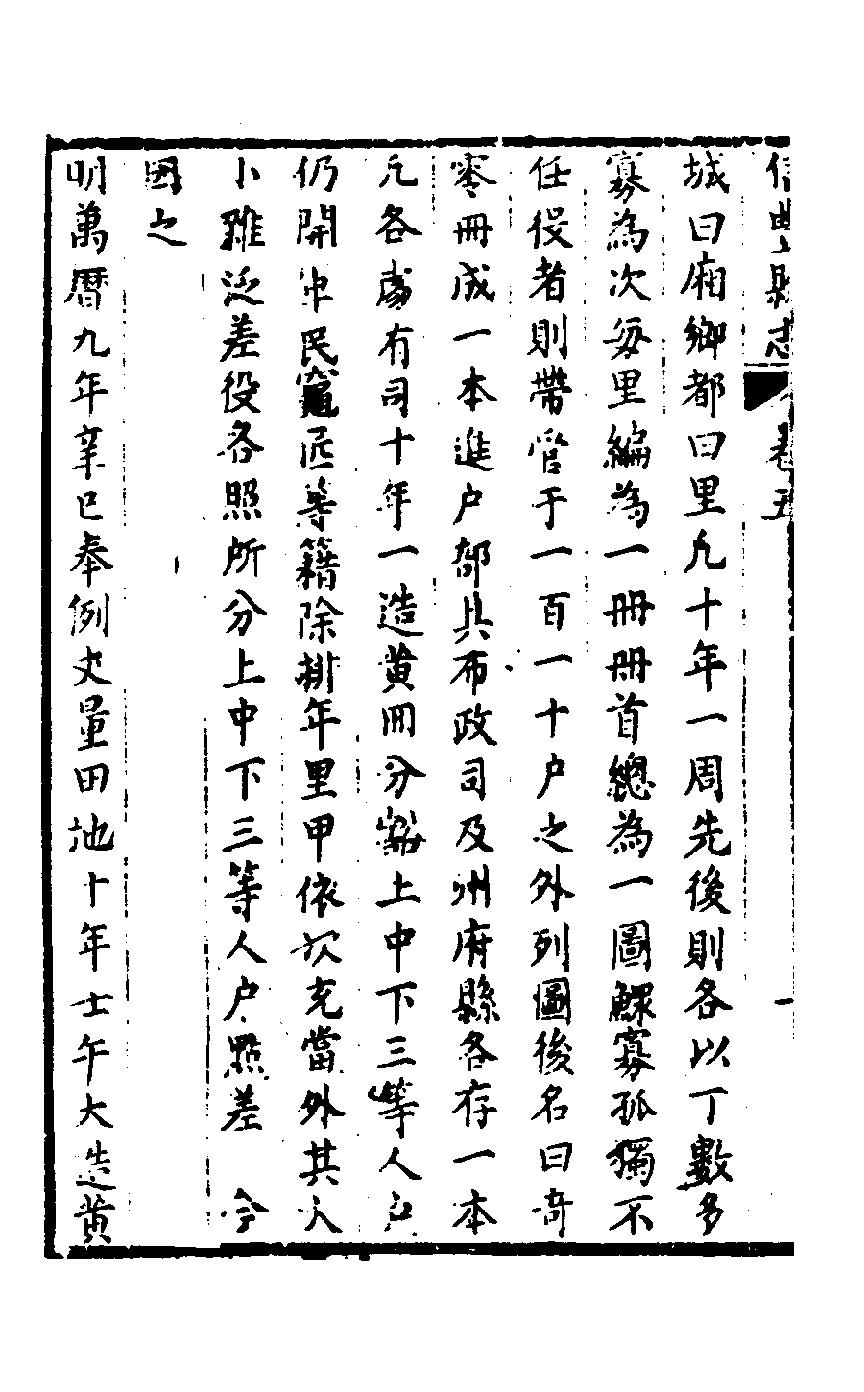 信豐縣志 卷五 一
城曰廂鄉都曰里凡十年一周先後則各以丁數多
寡為次每里編為一冊冊首總為一圖鰥寡孤獨不
任役者則帶管于一百一十户之外列圖後名曰奇
零冊成一本進户部其布政司及州府縣各存一本
凡各處有司十年一造黄冊分豁上中下三等人户
仍開軍民竈匠等籍除排年里甲依次充當外其大
小雜泛差役各照所分上中下三等人户點差 今
因之
明萬曆九年辛巳奉例丈量田地十年壬午大造黄